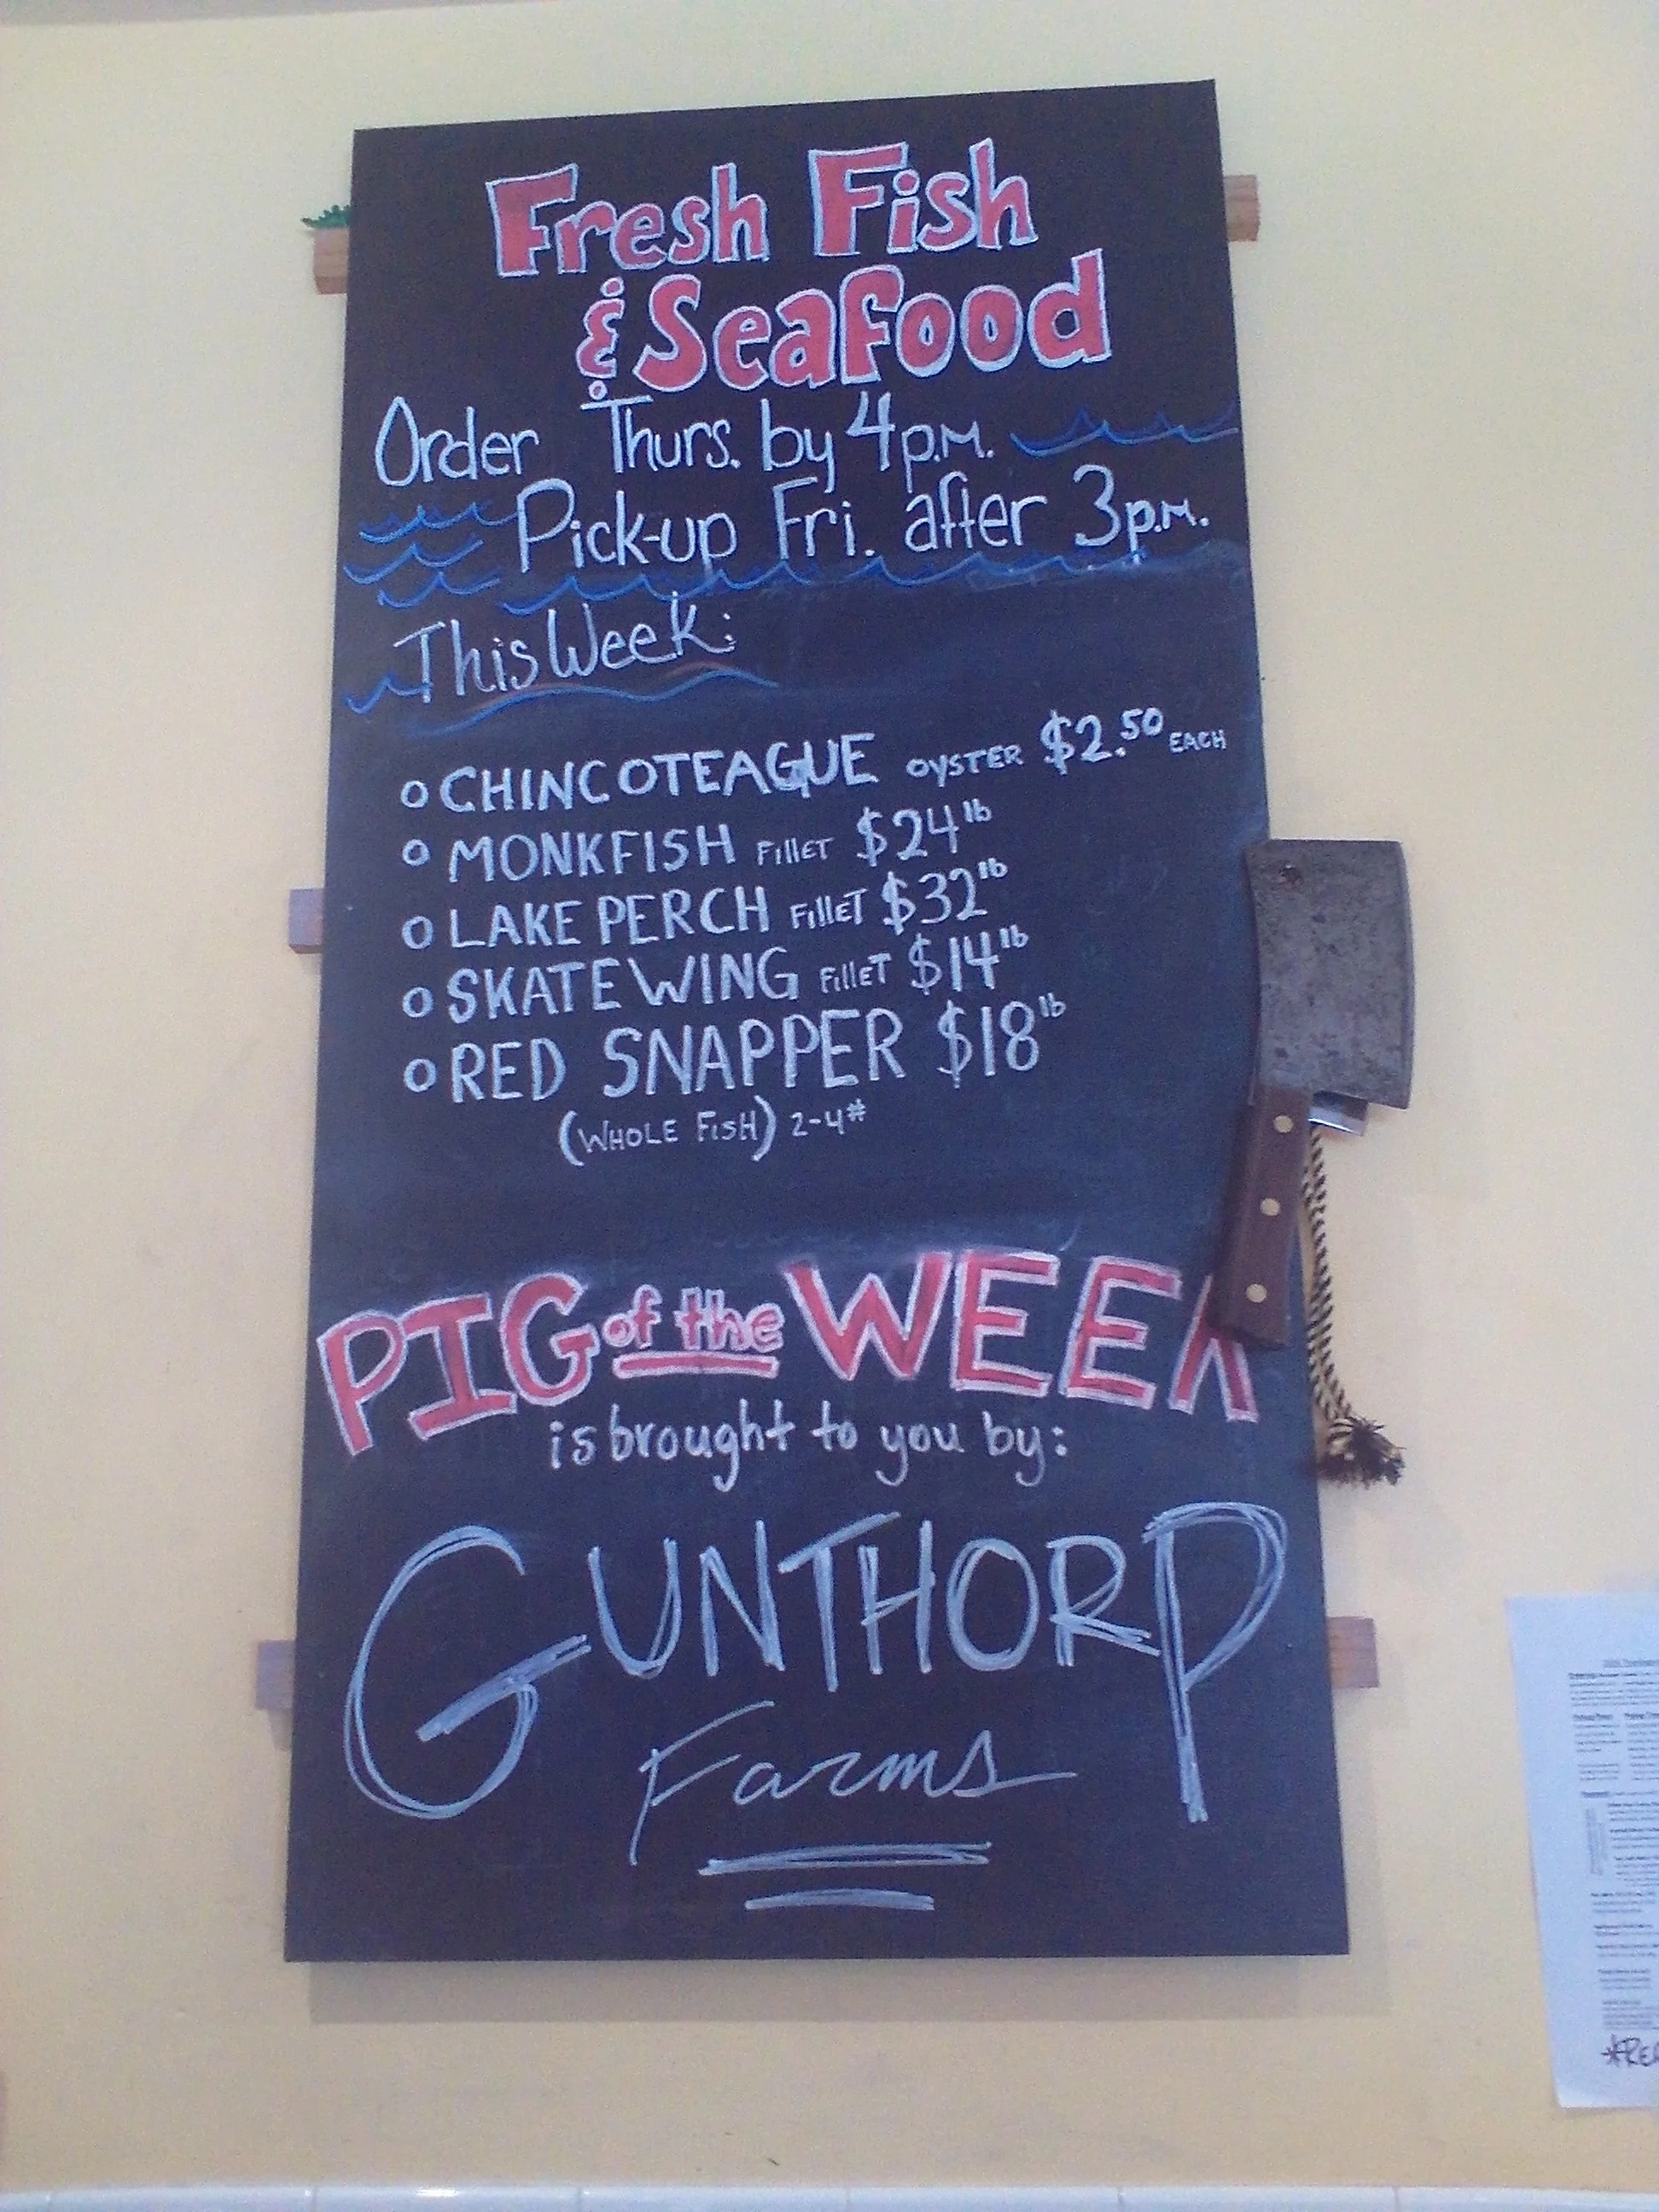 Fresh Fish
& Seafood
Order Thurs. by 4p.m.
Pick-up Fri. after 3p.m.
This Week:
o CHINCOTEAGUE OYSTER $2.50 EACH
o MONKFISH Fillet $24 lb
o LAKE PERCH Fillet $32 lb
o SKATE WING Fillet $14 lb
o RED SNAPPER $18 lb
(WHOLE FISH) 2-4#
PIG of the WEEK
is brought to you by:
GUNTHORP
Farms